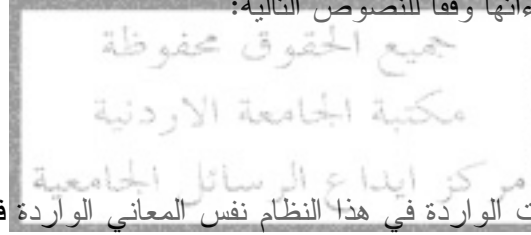 وفقا للنصوص التالية:
جميع الحقوق محفوظة
مكتبة الجامعة الاردنية
مركز ايداع الرسائل الجامعية
الواردة في هذا النظام نفس المعاني الواردة